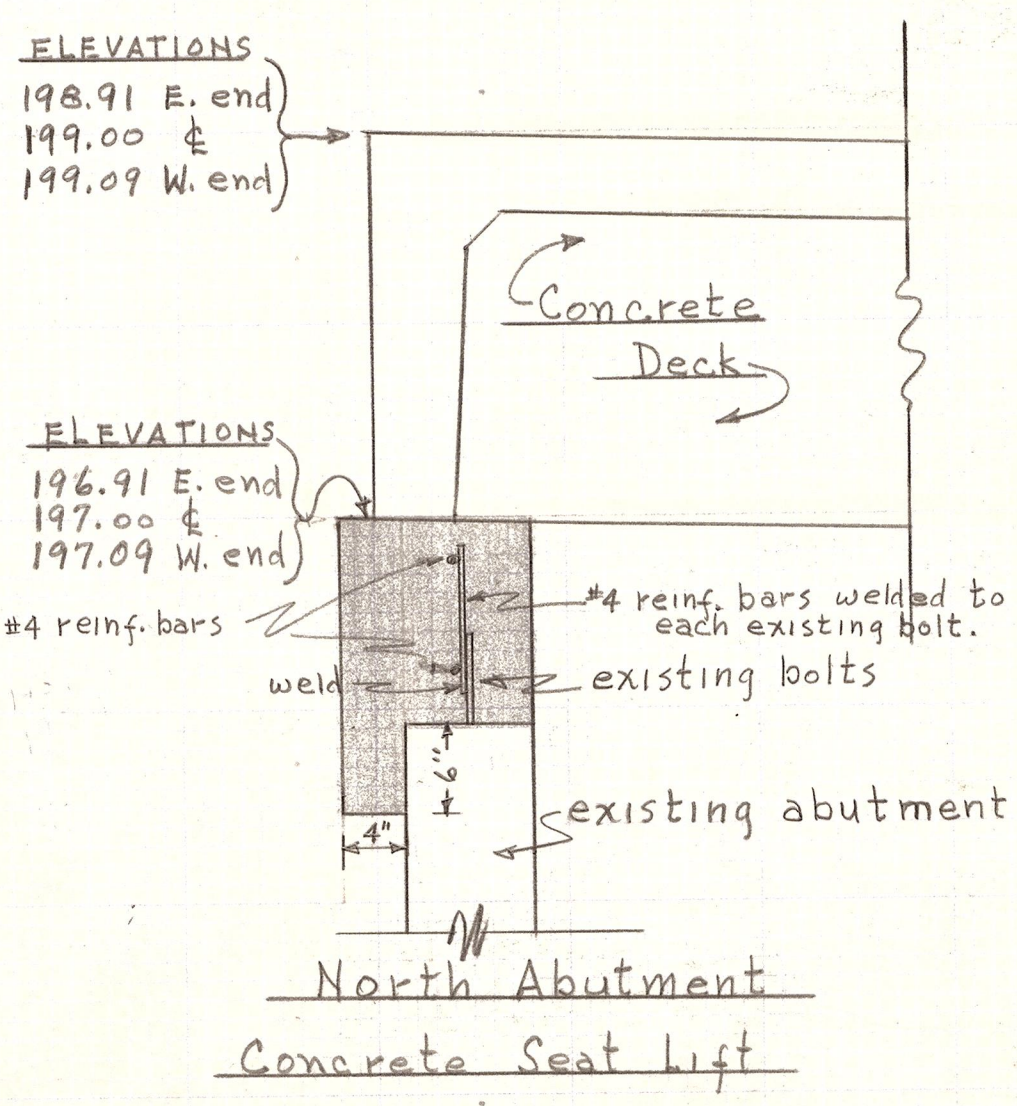 ELEVATIONS
198.91 E. end
199.00 ℄
199.09 W. end
Concrete
Deck
ELEVATIONS
196.91 E. end
197.00 ℄
197.09 W. end
#4 reinf. bars
#4 reinf. bars welded to
each existing bolt.
weld
existing bolts
6"
4"
existing abutment
North Abutment
Concrete Seat Lift